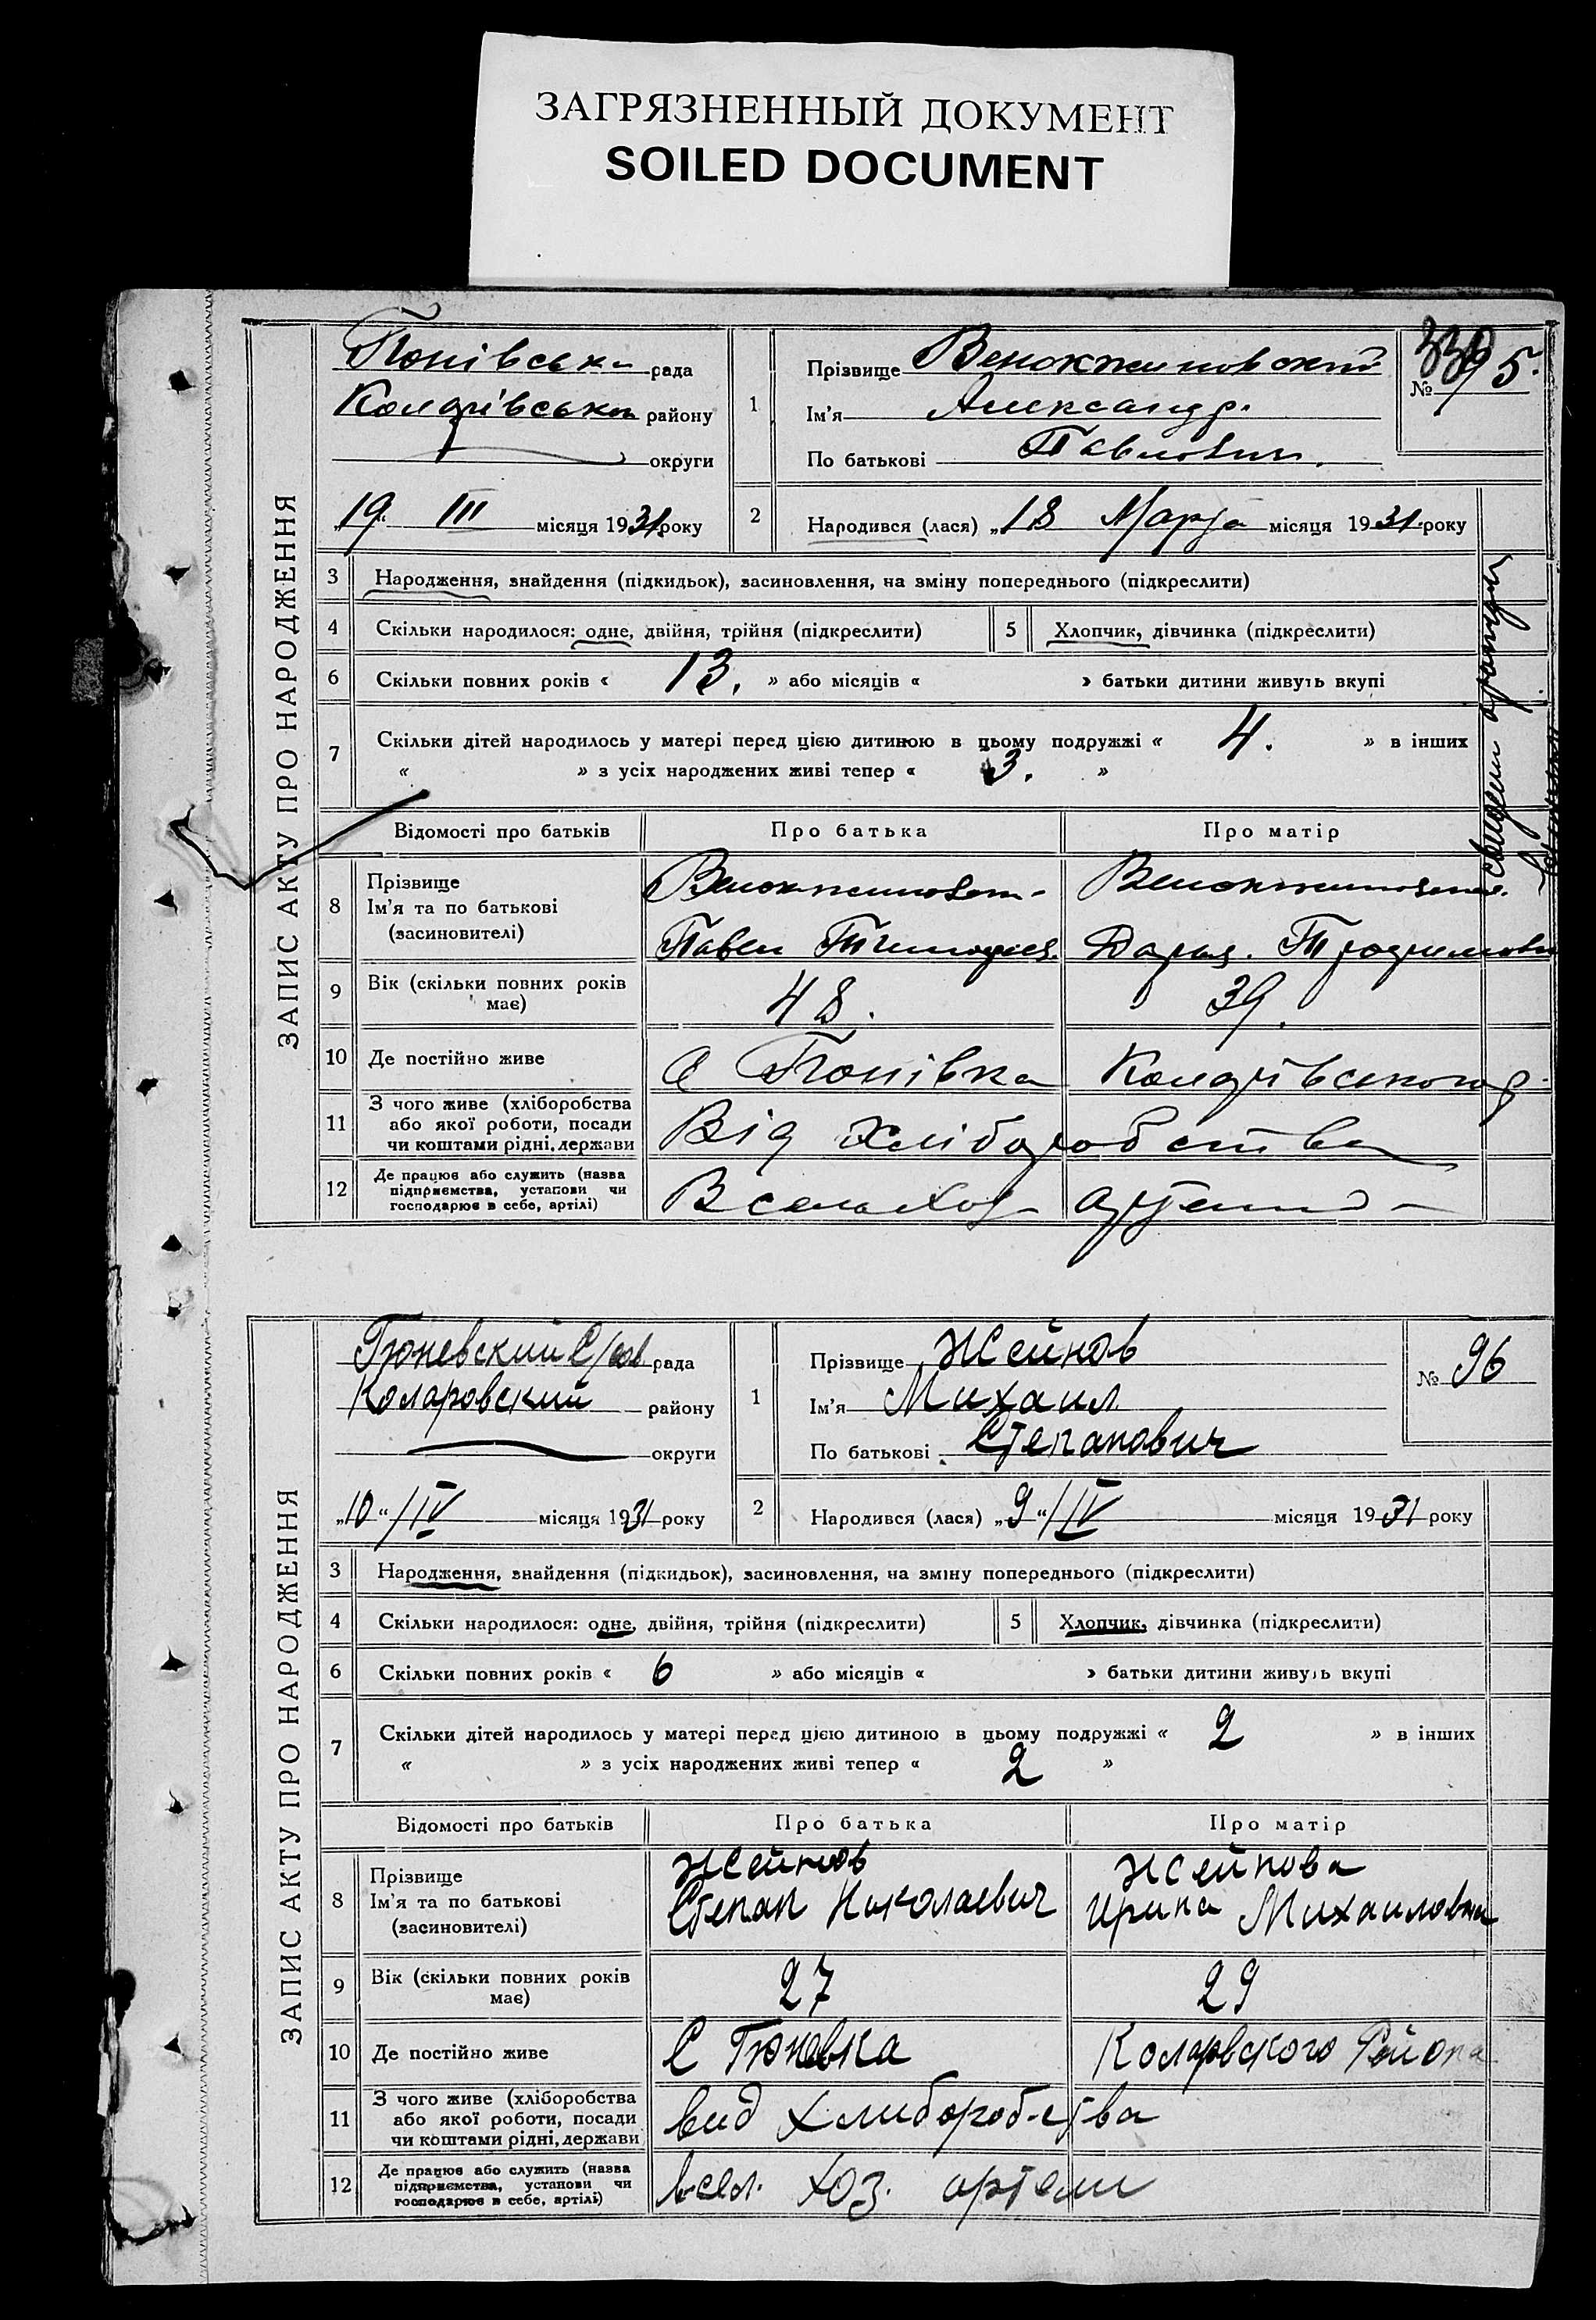 ЗАГРЯЗНЕННЫЙ ДОКУМЕНТ
SOILED DOCUMENT
ЗАПИС АКТУ ПРО НАРОДЖЕННЯ
Попівська рада
району
округи
„19“ III місяця 1931 року
1
Прізвище
Ім'я Александр.
По батькові Павлович.
№ 95.
2
Народився (лася) „18 Марта місяця 1931 року
3 Народження, знайдення (підкидьок), засиновлення, на зміну попереднього (підкреслити)
4 Скільки народилося: одне, двійня, трійня (підкреслити)
5 Хлопчик, дівчинка (підкреслити)
6 Скільки повних років « 13. » або місяців « » батьки дитини живуть вкупі
7 Скільки дітей народилось у матері перед цією дитиною в цьому подружжі « 4. » в інших
« » з усіх народжених живі тепер « 3. »
Відомості про батьків Про батька Про матір
8 Прізвище
Ім'я та по батькові
(засиновителі)
Павел
Дарья.
9 Вік (скільки повних років має) 48. 39.
10 Де постійно живе С Попівка
11 З чого живе (хліборобства
або якої роботи, посади
чи коштами рідні, держави
Від хліборобства
12 Де працює або служить (назва
підприємства, установи чи
господарює в себе, артілі)
В сельхоз артели
ЗАПИС АКТУ ПРО НАРОДЖЕННЯ
Гюневский С/сов рада
Коларовский району
округи
„10“/IV місяця 1931 року
1
Прізвище Жейнов
Ім'я Михаил
По батькові Степанович
№ 96
2
Народився (лася) „9“/IV місяця 1931 року
3 Народження, знайдення (підкидьок), засиновлення, на зміну попереднього (підкреслити)
4 Скільки народилося: одне, двійня, трійня (підкреслити)
5 Хлопчик, дівчинка (підкреслити)
6 Скільки повних років « 6 » або місяців « » батьки дитини живуть вкупі
7 Скільки дітей народилось у матері перед цією дитиною в цьому подружжі « 2 » в інших
« » з усіх народжених живі тепер « 2 »
Відомості про батьків Про батька Про матір
8 Прізвище
Ім'я та по батькові
(засиновителі)
Жейнов
Степан Николаевич
Жейнова
Ирина Михаиловна
9 Вік (скільки повних років має) 27 29
10 Де постійно живе С Гюневка Коларовского Района
11 З чого живе (хліборобства
або якої роботи, посади
чи коштами рідні, держави
вид хлиборобства
12 Де працює або служить (назва
підприємства, установи чи
господарює в себе, артілі)
в сел. хоз. артели